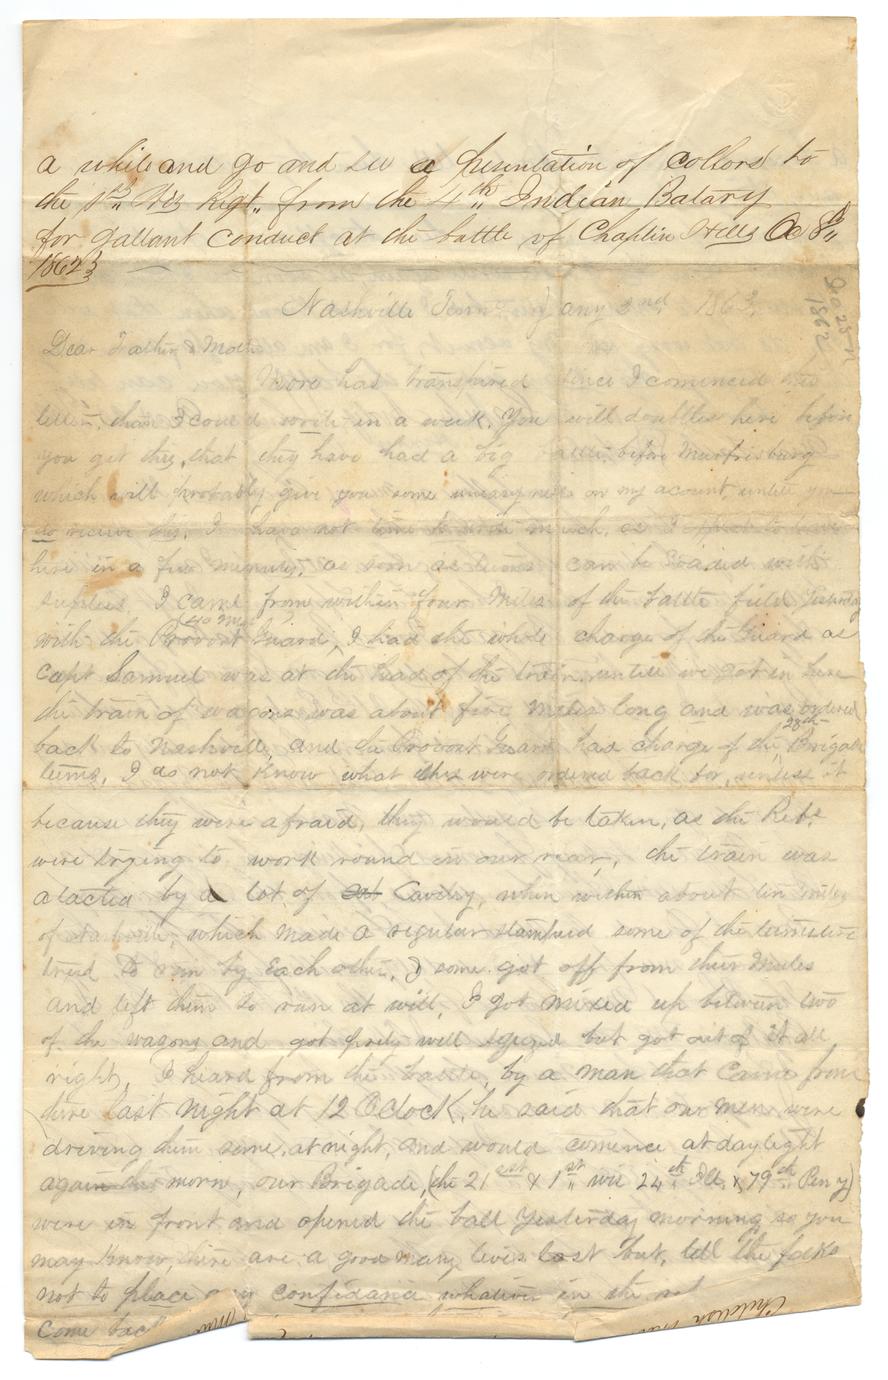 a while and go and see a presentation of collors to
the 1st,, Wis Regt,, from the 4th,, Indian Batary
for gallant conduct at the battle of Chaplin Hills Oc 8th,,
1862
Nashville Tenn, Jany 2nd 1863,
Dear Father & Mother
More has transpired since I comenced this
letter, than I could write in a week, You will doubtles here before
you get this, that they have had a big battle, before Murfrisburg
which will probably give you some uneasyness on my acount, untill you
do receive this, I have not time to write much, as I expect to leave
here in a few minuts, as soon as teams can be loaded with
suplies, I came from within four Miles of the battle field yesterday
with the Provost Guard, I had the whole charge of the Guard as
Capt Samuel was at the head of the train, untill we got in here
the train of wagons was about five miles long and was ordered
back to Nashville, and the Provost Guard has charge of the 28th Brigade
teams, I do not know what they were ordered back for, unless it
because they were afraid, they would be taken, as the Rebs
were trying to work round in our rear, the train was
atacted by a lot of Cavelry, when within about ten miles
of Nashville, which made a regular stampeed some of the teamsters
tried to run by each other, & some got off from their Mules
and left them to run at will, I got mixed up between two
of the wagons and got prety well sqused but got out of it all
right, I heard from the battle, by a man that came from
there last night at 12 Oclock, he said that our men were
driving them some, at night, and would comence at daylight
again this morn, our Brigade, (the 21st & 1st,, wis 24th,, Ills, & 79th,, Peny)
were in front and opened the ball yesterday morning, so you
may know there are a good many lives lost but, tell the folks
not to place any confidance whatever in the
come back
Jan 2d
1862